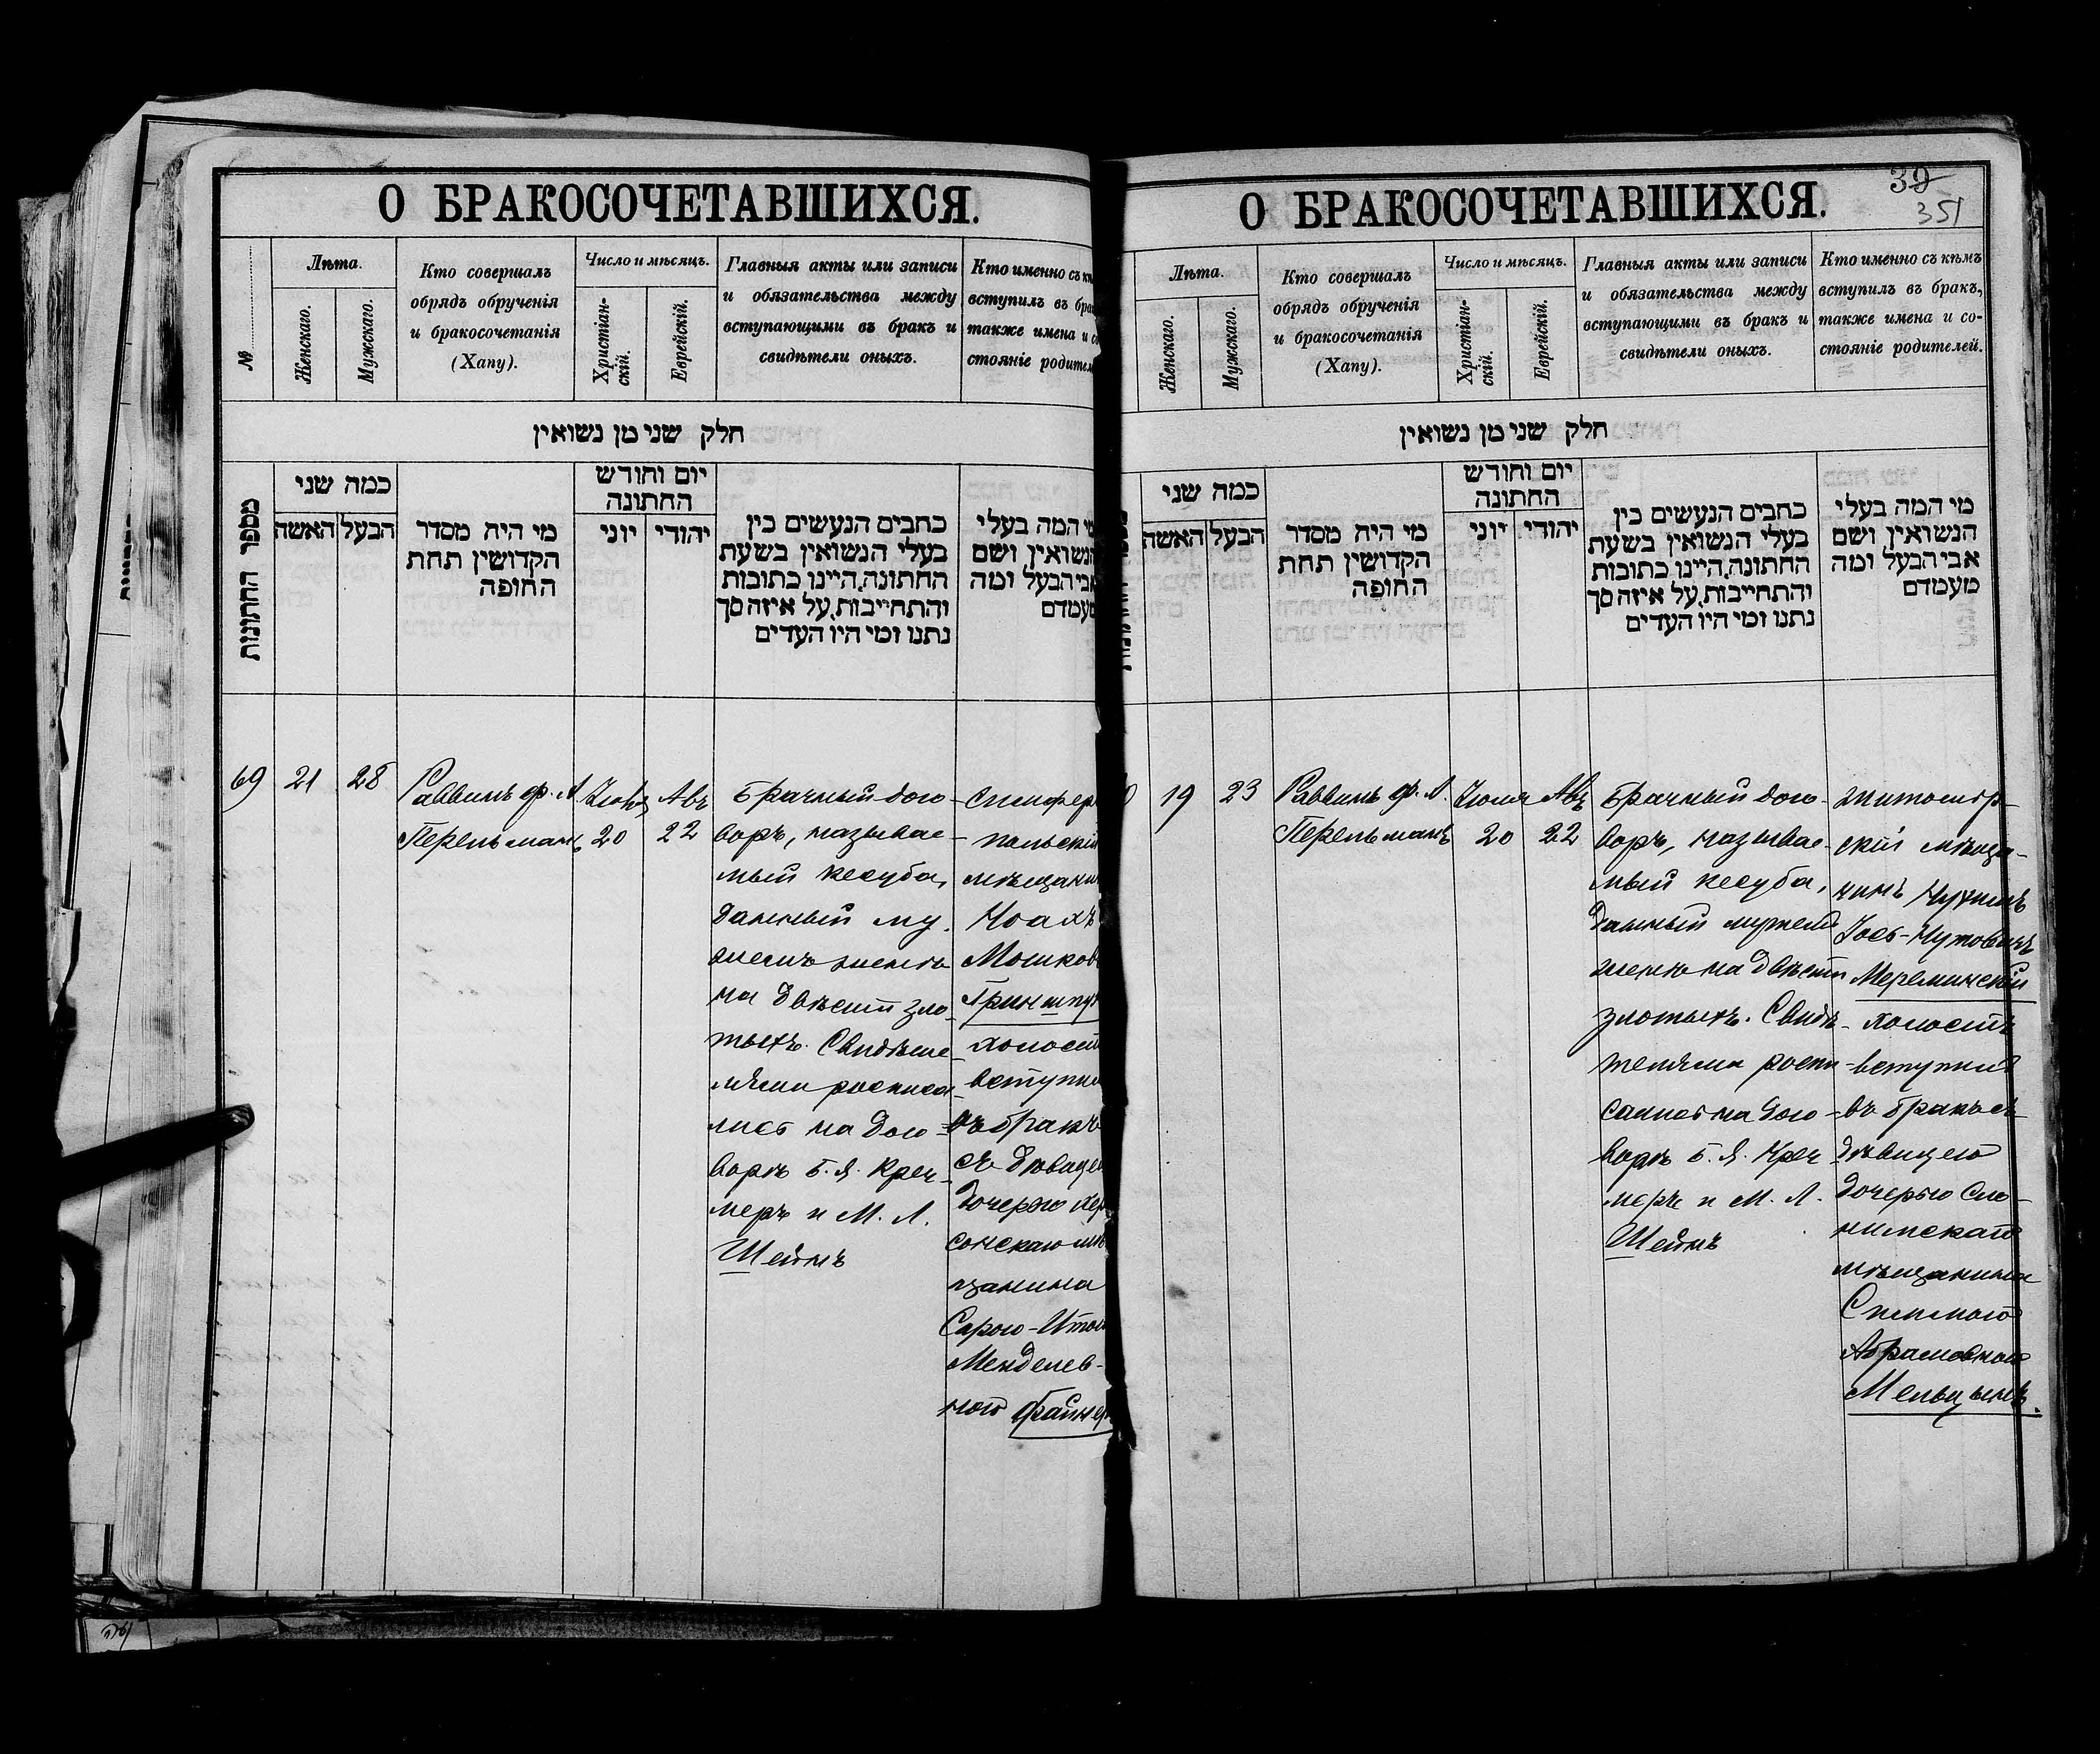 О БРАКОСОЧЕТАВШИХСЯ.
№
Лѣта.
Женскаго.
Мужскаго.
Кто совершалъ
обрядъ обрученія
и бракосочетанія
(Хапу).
Число и мѣсяцъ.
Христіан-
скій.
Еврейскій.
Главныя акты или записи
и обязательства между
вступающими въ бракъ и
свидѣтели оныхъ.
Кто именно съ
вступилъ въ
также имена и
стояніе
חלק שני מן נשואין
מספר החתונות
כמה שני
האשה
הבעל
מי היה מסדר
הקדושין תחת
החופה
יום וחודש
החתונה
יוני
יהודי
כתבים הנעשים בין
בעלי הנשואין בשעת
החתונה, היינו כתובות
והתחייבות, על איזה סך
נתנו ומי היו העדים
המה בעלי
ושם
ומה
69
21
28
Раввинъ ф. А.
Перельманъ
Іюля
20
Авъ
22
Брачный дого-
воръ, называе-
мый кесуба,
данный му-
жемъ женѣ
на двѣсти зло-
тыхъ. Свидѣте-
лями росписа-
лись на дого-
ворѣ Б. Я. Креч-
меръ и М. Л.
Шеинъ
мѣщанин
Ноахъ
въ бракъ
съ
дочерью
цанина
Менделев-
ною
О БРАКОСОЧЕТАВШИХСЯ.
39
351
Лѣта.
Женскаго.
Мужскаго.
Кто совершалъ
обрядъ обрученія
и бракосочетанія
(Хапу).
Число и мѣсяцъ.
Христіан-
скій.
Еврейскій.
Главныя акты или записи
и обязательства между
вступающими въ бракъ и
свидѣтели оныхъ.
Кто именно съ кѣмъ
вступилъ въ бракъ,
также имена и со-
стояніе родителей.
חלק שני מן נשואין
כמה שני
האשה
הבעל
מי היה מסדר
הקדושין תחת
החופה
יום וחודש
החתונה
יוני
יהודי
כתבים הנעשים בין
בעלי הנשואין בשעת
החתונה, היינו כתובות
והתחייבות, על איזה סך
נתנו ומי היו העדים
מי המה בעלי
הנשואין ושם
אבי הבעל ומה
מעמדם
19
23
Раввинъ ф. А.
Перельманъ
Іюля
20
Авъ
22
Брачный дого-
воръ, называе-
мый кесуба,
данный мужемъ
женѣ на двѣсти
злотыхъ. Свидѣ-
телями роспи-
сались на дого-
ворѣ Б. Я. Креч-
меръ и М. Л.
Шеинъ
Житомір-
скій мѣща-
нинъ Нухимъ
Меремінскій
холостъ
вступилъ
въ бракъ съ
дѣвицею
дочерью Сло-
нимскаго
мѣщанина
Абрамовною
Мельцынъ.